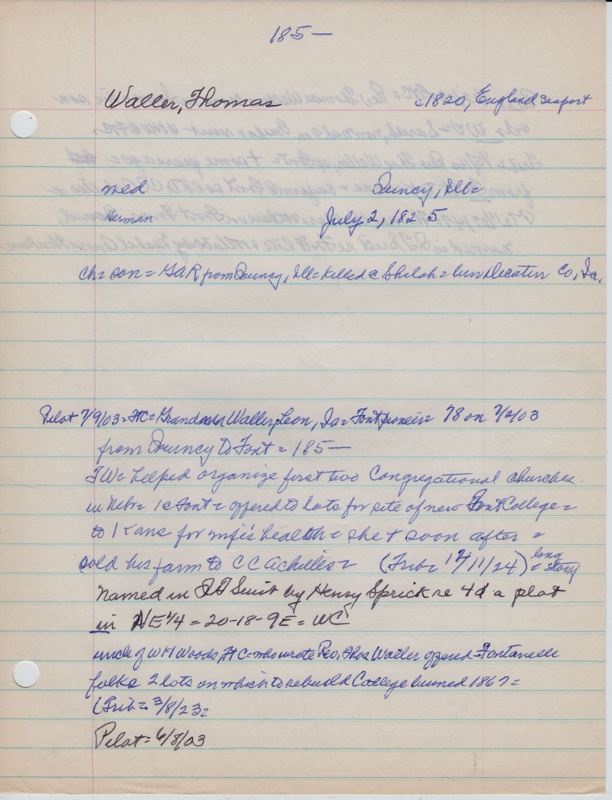 185—
Waller, Thomas c1820, England seaport
med Quincy, Ill=
Herman July 2, 1825
ch= son = GAR from Quincy, Ill= killed @ Shiloh = bur Decatur Co, Ia.
Pilot 7/9/03= HC= Waller, Leon, Ia= Font pioneer= 78 on 7/2/03
from Quincy to Font = 185—
TW= helped organize first two Congregational churches
in Nebr= 1 @ Font = offered 10 lots for site of new Font College=
to Kans for wife's health = she + soon after =
sold his farm to CC Achilles= (Trib= 12/11/24) = long story
Named in Suit by Henry Sprick re 4d a plat
in NE¼ = 20-18-9E = WC
uncle of WH Woods, FC= who wrote Rev. Thos Waller offered Fontanelle
folks 2 lots on which to rebuild College burned 186?=
(Trib= 3/8/23=
Pilot= 6/8/03